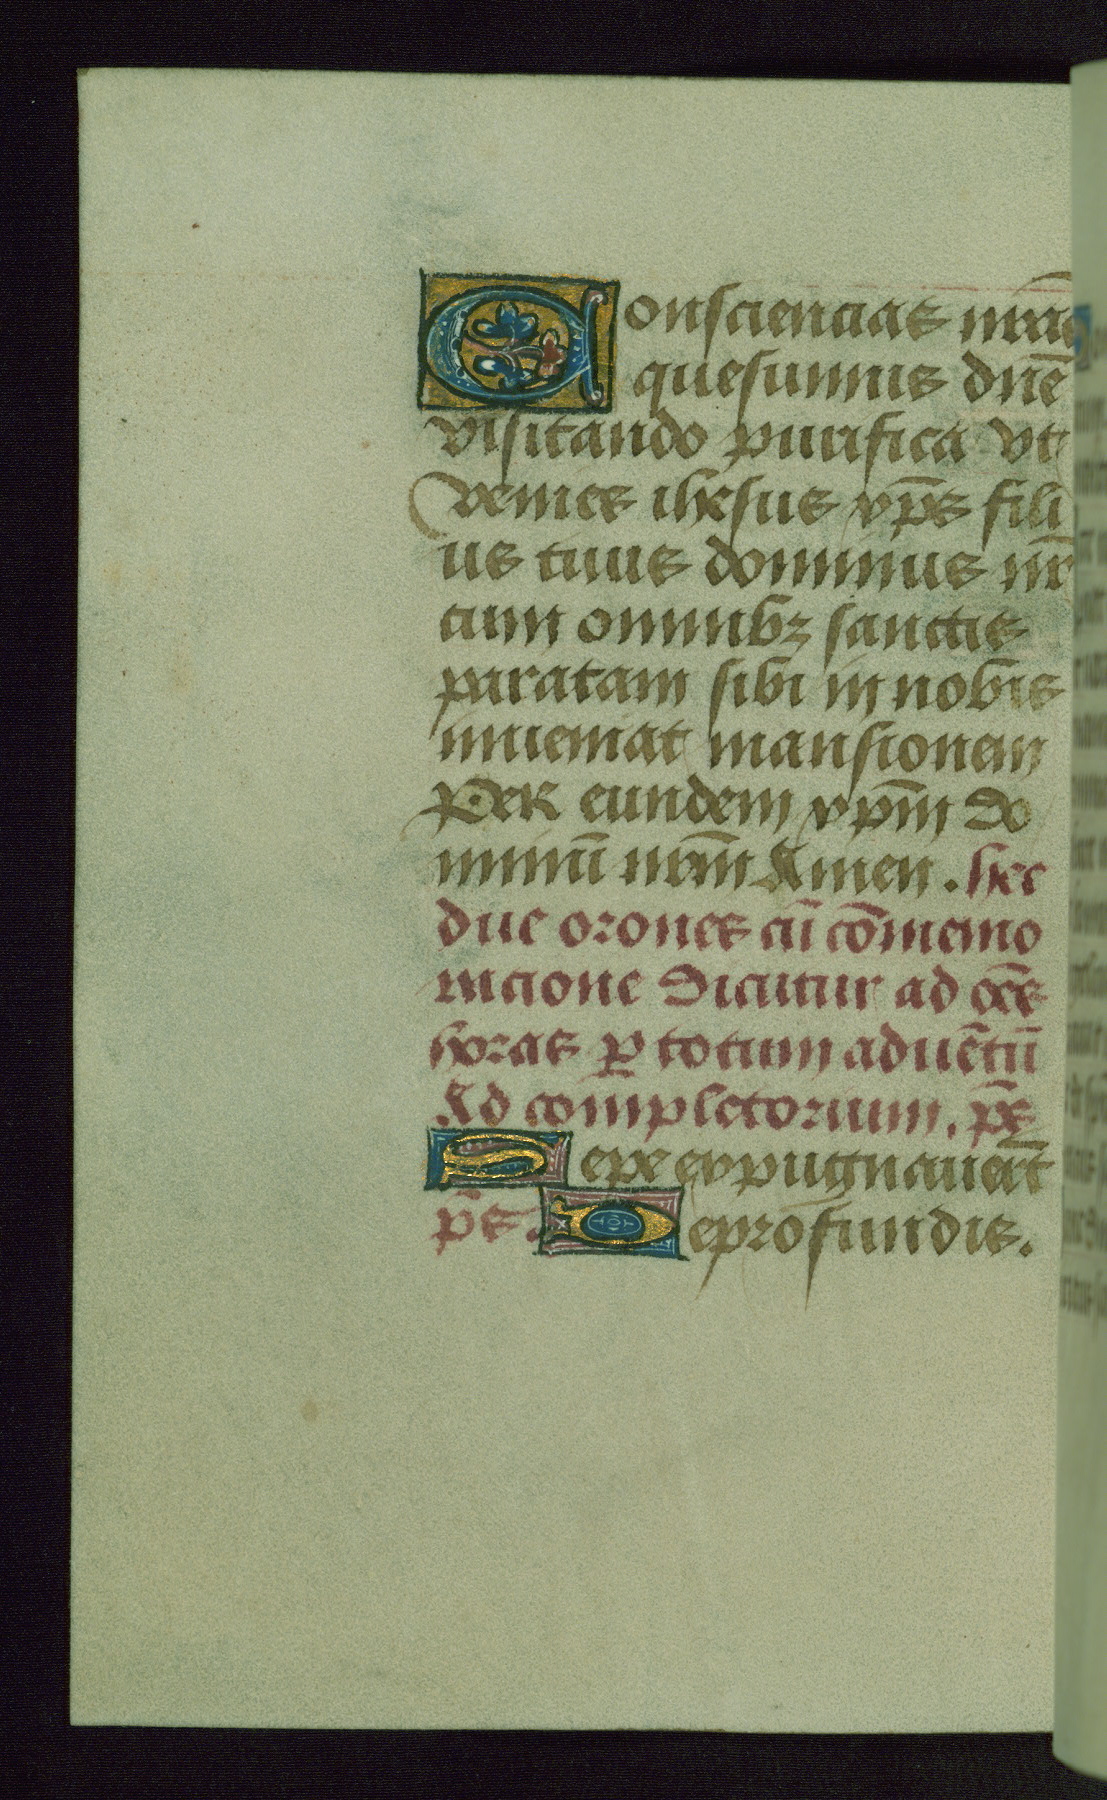 Consciencias nrãs
quesumus dñe
visitando purifica vt
veniẽs ihesus xp̃s fili
us tuus dominus nr̃
cum omnibꝫ sanctis
paratam sibi in nobis
inueniat mansionem
Per eundem xp̃m do
minũ nrm̃ Amen. hec
due orones cũ cõmemo
racione dicũtur ad oẽs
horas ꝑ totum aduẽtũ
Ad completorium. p̃s
Sepe expugnauert̃
p̃s. De profundis.